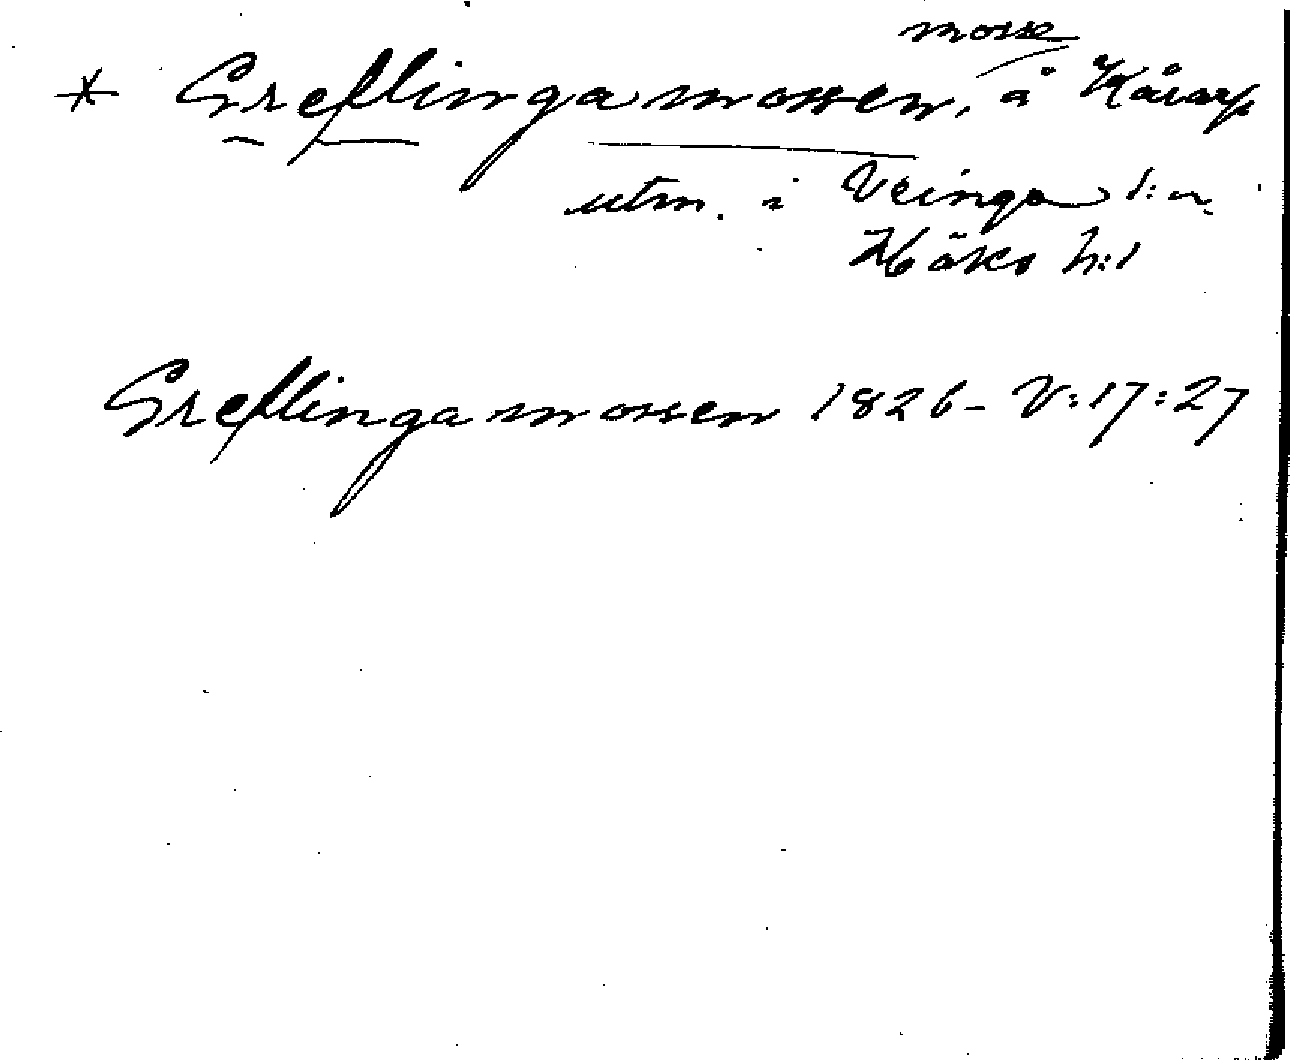 mosse
* Greflingamossen, å Kåarp
utm. i Veinge s:n.
Höks h:d
Greflingamossen 1826 - V:17:27